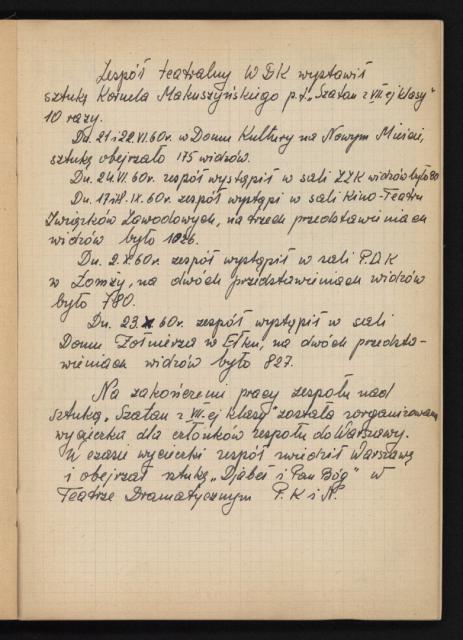 Zespół teatralny W DK wystawił
sztukę Kornela Makuszyńskiego p.t. „Szatan z VII-ej klasy"
10 razy.
Dn. 21 i 22.VI.60r. w Domu Kultury na Nowym Mieście,
sztukę obejrzało 175 widzów.
Dn. 24.VI.60r. zespół wystąpił w sali ZZK widzów było 80
Dn. 17 i 18.IX.60r. zespół wystąpi w sali Kino-Teatru
Związków Zawodowych, na trzech przedstawieniach
widzów było 1026.
Dn. 2.X.60r. zespół wystąpił w sali P.D.K
w Łomży, na dwóch przedstawieniach widzów
było 780.
Dn. 23.X.60r. zespół wystąpił w sali
Domu Żołnierza w Ełku, na dwóch przedsta-
wieniach widzów było 827.
Na zakończenie pracy zespołu nad
sztuką „Szatan z VII-ej klasy" została zorganizowana
wycieczka dla członków zespołu do Warszawy.
W czasie wycieczki zespół zwiedził Warszawę
i obejrzał sztukę „Djabeł i Pan Bóg" w
Teatrze Dramatycznym P.K i N.